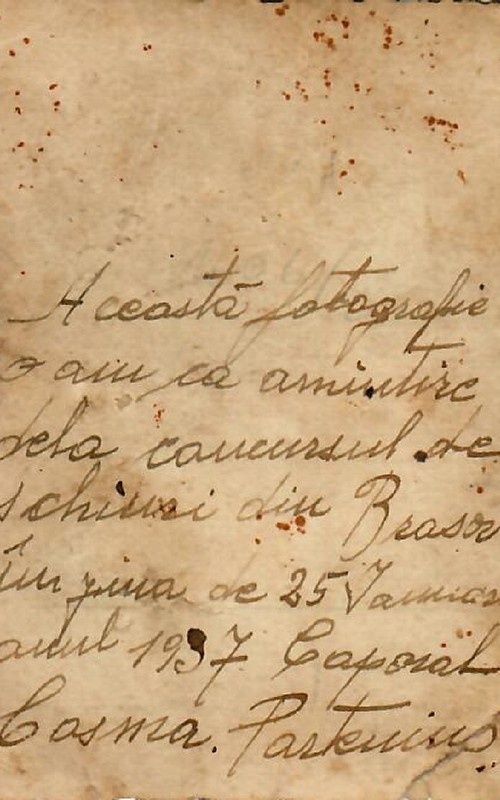 Această fotografie
o am ca amintire
dela concursul de
schiuri din Brasov
în ziua de 25 Januar
anul 1937 Caporal
Cosma. Partenius